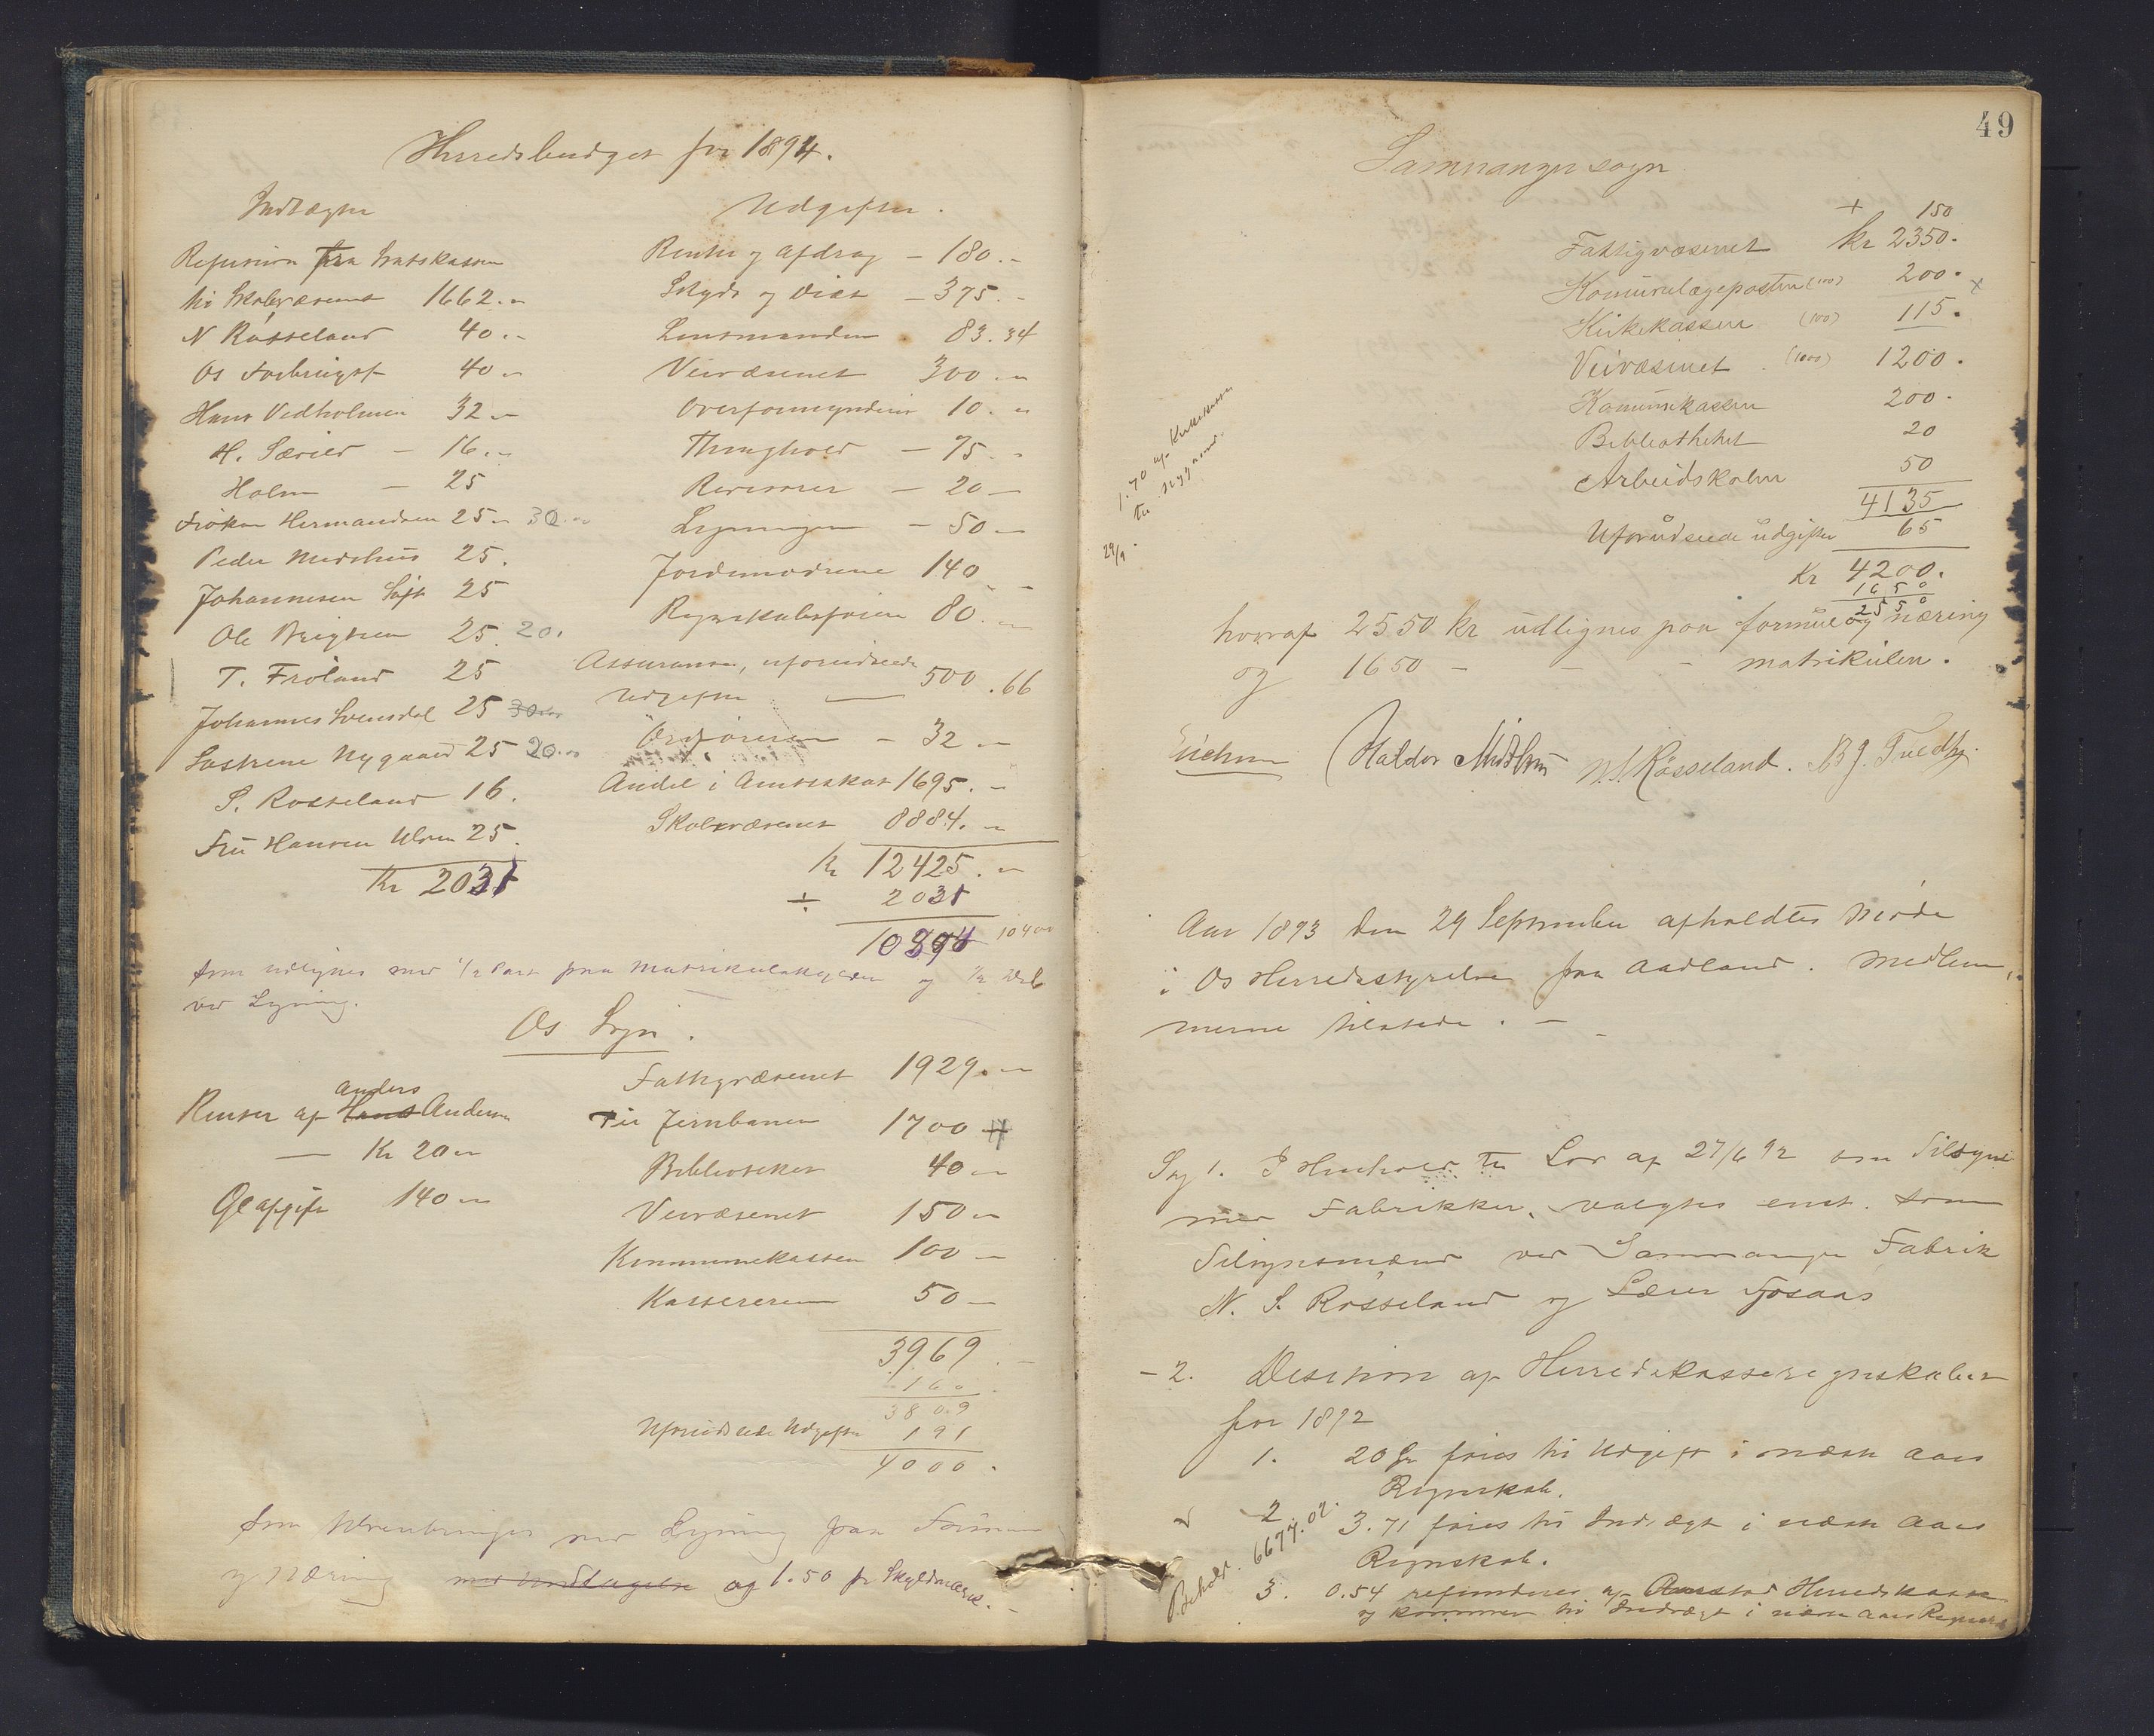 Herredsbudget for 1894.
Indtægter
Refusion fra Statskassen
til Skolevæsenet 1662.„
N Røsseland 40.„
Os Forbrugsf. 40 „
Hans Vedholmen 32 „
H. Særvold – 16.„
Holm – 25
Frøken Hermandsen 25.„ 30.„
Peder Midthus 25.
Johannesen Søft 25
Ole Brigtsen 25. 20.
T. Frøland 25
Johannes Svensdal 25 30.„
Søstrene Nygaard 25 20.„
S. Røsseland 16.
Fru Hansen Ulven 25.
Kr 2031
Udgifter.
Renter og Afdrag – 180.–
Skyds og Diæt – 375.–
Lensmanden 83.34
Veivæsenet 300.„
Overformynderi 10.„
Thinghold – 75.„
Revisorer – 20 –
Ligningen – 50 –
Jordemødrene 140 –
Regnskabsførere 80.–
Assurance, uforudseede
Udgifter — 500.66
Ordføreren – 32 „
Andel i Amtsskat 1695.–
Skolevæsenet 8884.„
Kr 12425.„
÷ 2031
10394 10400
Som udlignes med 1/2 Part paa Matrikulskylden og 1/2 Del
ved Ligning.
Os Sogn.
Anders
Renter af Hans Andersen
— Kr 20 „
Ølafgift 140 „
Fattigvæsenet 1929.„
Til Jernbanen 1700
Bibliotheket 40 „
Veivæsenet 150 „
Kommunekassen 100 –
Kassereren 50 –
3969.–
160.
3809
Uforudseede Udgifter 191
4000.
Som tilveiebringes ved Ligning paa Formue
og Næring med Undtagelse og 1.50 pr Skyldmark.
49
Samnanger sogn.
+ 150
Fattigvæsenet kr 2350.
Komunelægeposten (100) 200. x
Kirkekassen (100) 115.
Veivæsenet (1000) 1200.
Komunekassen 200.
Bibliotheket 20
Arbeidskolen 50
4135
Uforudseede udgifter 65
Kr 4200.
1650
2550
hvoraf 2550 kr udlignes paa formue og næring
og 1650 – – – matrikulen.
1.70 af Kirkekassen
til Nygaard.
29/9.
Haldor Midthun N. S. Røsseland.
Aar 1893 den 29 September afholdtes Møde
i Os Herredsstyrelse paa Aadland. Medlem-
merne tilstede. –
Sag 1. I Henhold til Lov af 27/6 92 om Tilsyn
med Fabrikker, valgtes enst. som
Tilsynsmænd ved Samnanger Fabrik
N. S. Røsseland og Lærer Tøsaas
– 2. Desision af Herredskasseregnskabet
for 1892
1. 20 Kr føres til Udgift i næste Aars
Regnskab.
2 3.71 føres til Indtægt i næste Aars
Regnskab.
Behold. 6677.02.
3. 0.54 refunderes af Herredskassen
og kommer til Indtægt i næste Aars Regnskab